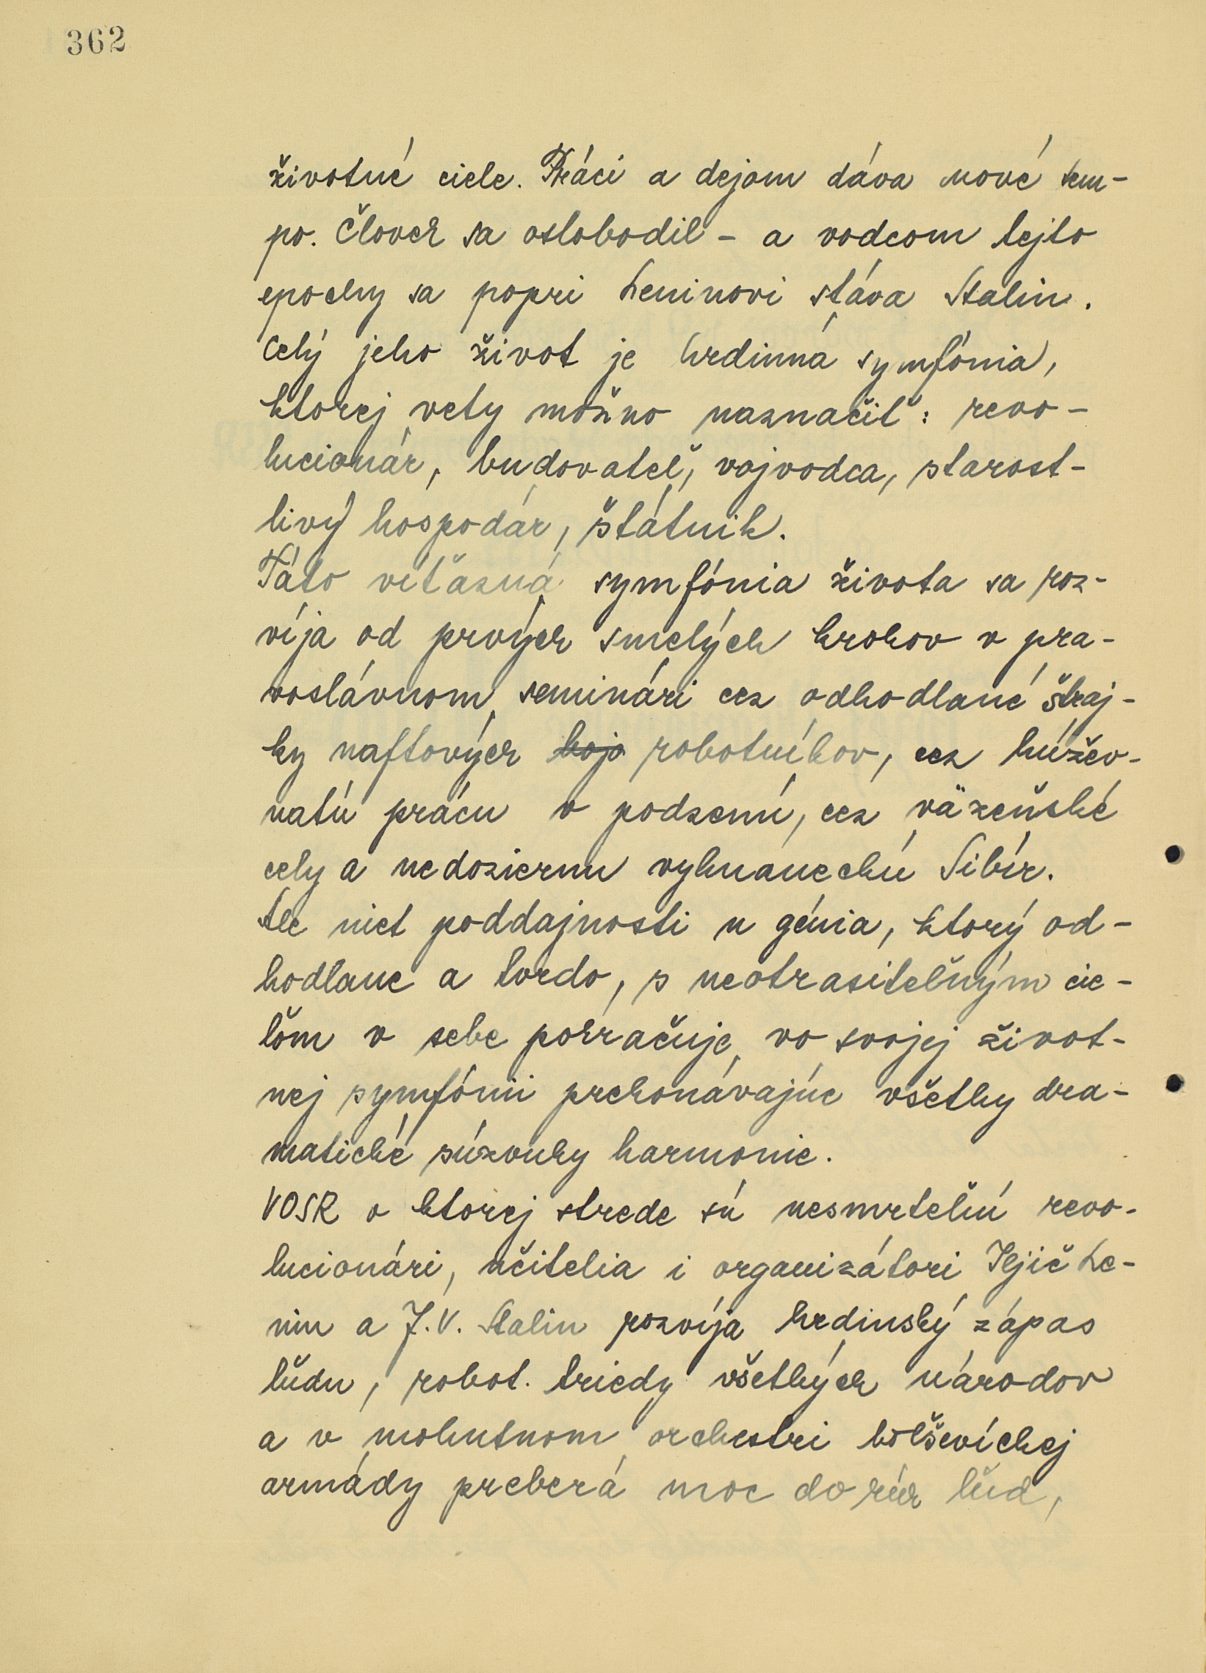 362
životné ciele. Práci a dejom dáva nové tem-
po. Človek sa oslobodil – a vodcom tejto
epochy sa popri Leninovi stáva Stalin.
Celý jeho život je hrdinná symfónia,
ktorej vety možno naznačiť: revo-
lucionár, budovateľ, vojvodca, starost-
livý hospodár, štátnik.
Táto víťazná symfónia života sa roz-
víja od prvých smelých krokov v pra-
voslávnom seminári cez odhodlané štraj-
ky naftových bojo robotníkov, cez húžev-
natú prácu v podzemí, cez väzeňské
cely a nedoziernu vyhnaneckú Sibír.
Ale niet poddajnosti u génia, ktorý od-
hodlane a tvrdo, s neotrasiteľným cie-
ľom v sebe pokračuje vo svojej život-
nej symfónii prekonávajúc všetky dra-
matické súzvuky harmonie.
VOSR v ktorej strede sú nesmrteľní revo-
lucionári, učitelia i organizátori Iljič Le-
nin a J.V. Stalin rozvíja hrdinský zápas
ľudu, robot. triedy všetkých národov
a v mohutnom orchestri boľševíckej
armády preberá moc do rúk ľud,